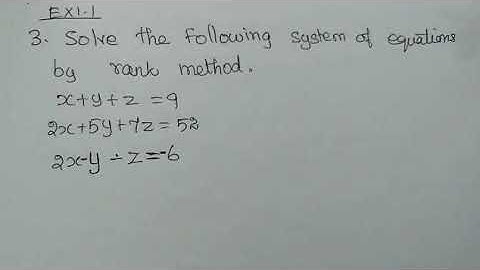 EX1.1
3. Solve the following system of equations
by rank method.
x+y+z =9
2x+5y+7z=52
2x-y-z=-6